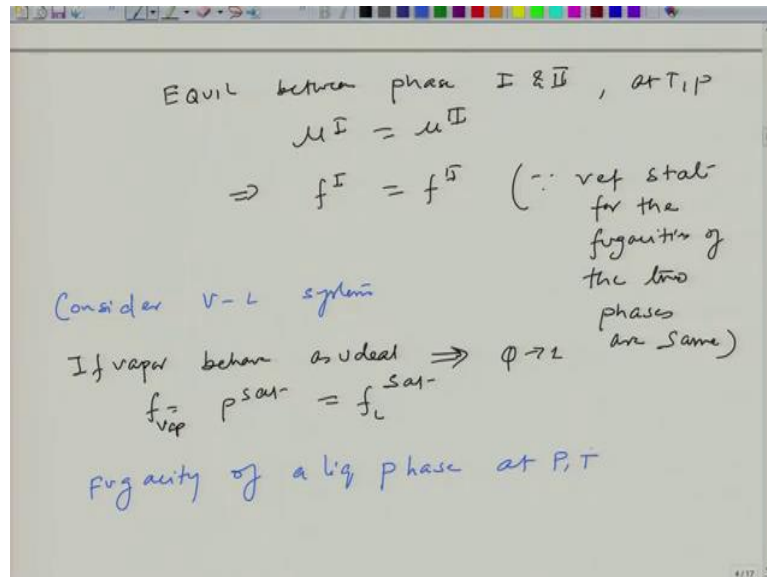 EQUIL between phase I & II , at T, P
μ^I = μ^II
⇒ f^I = f^II (∵ ref stat
for the
fugacities of
the two
phases
are same)
Consider V-L system
If vapor behave as ideal ⇒ φ→1
f_vap = p^sat = f_L^sat
Fugacity of a liq phase at P, T
4/17